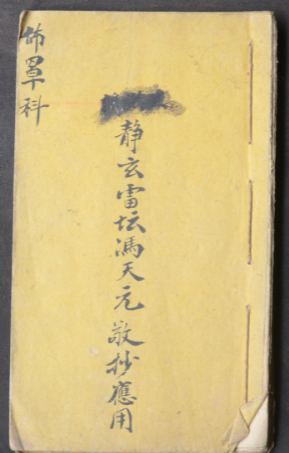 静玄雷坛馮天元敬抄應用
佈罩科